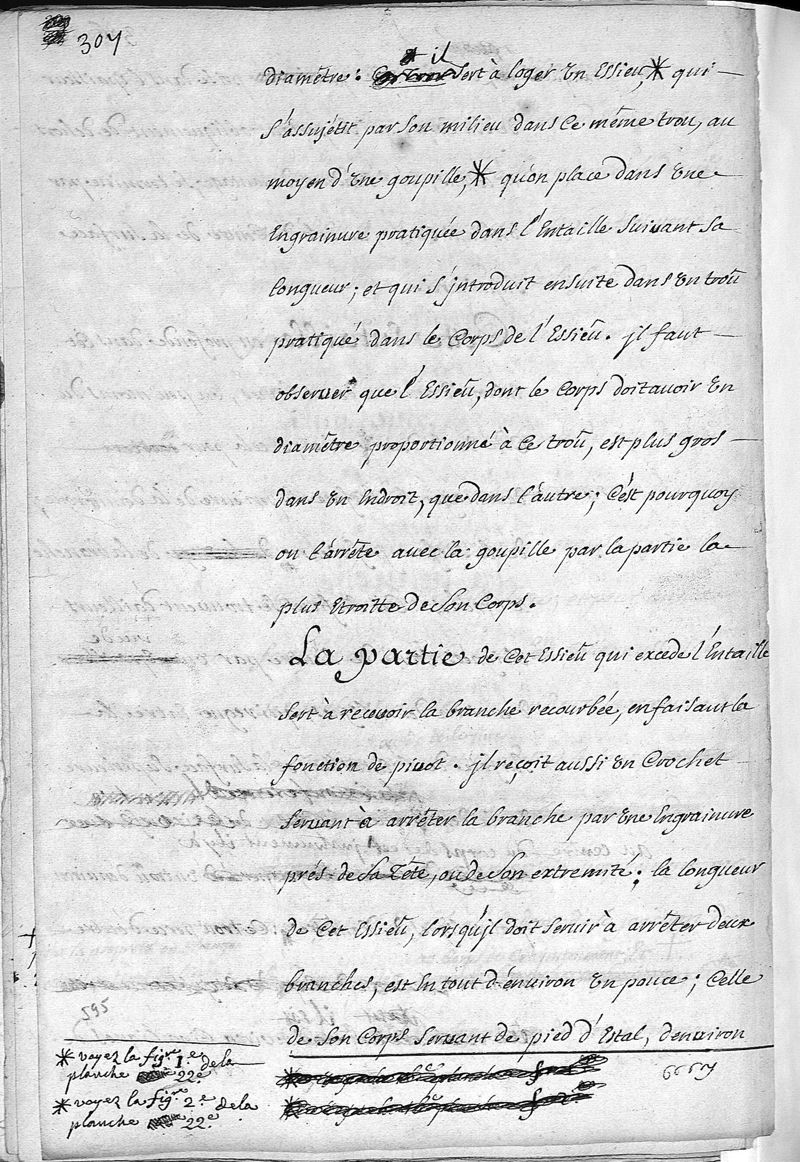 307
il
diamêtre : sert à loger un Essieu,* qui
s'assujétit par son milieu dans ce même trou, au
moyen d'une goupille,* qu'on place dans une
Engrainure pratiquée dans l'Entaille suivant sa
longueur ; et qui s'jntroduit ensuite dans un trou
pratiqué dans le Corps de l'Essieu. jl faut
observer que l'Essieu, dont le Corps doit avoir un
diamêtre proportionné à ce trou, est plus gros
dans un Endroit, que dans l'autre ; C'ést pourquoy
on l'arrête avec la goupille par la partie la
plus Etroitte de son Corps.
La partie de Cet Essieu qui excede l'Entaille
sert à recevoir la branche recourbée, en faisant la
fonction de pivot. jl reçoit aussi un Crochet
servant à arrêter la branche par une Engrainure
prés de sa Tête, ou de son extremité ; la longueur
de Cet Essieu, lorsqu'jl doit servir à arrêter deux
branches, est En tout d'énviron un pouce ; Celle
de son Corps servant de pied d'Estal, d'environ
595
* voyez la figr. 1.e de la
planche 22.e
* voyez la figr. 2.e de la
planche 22.e